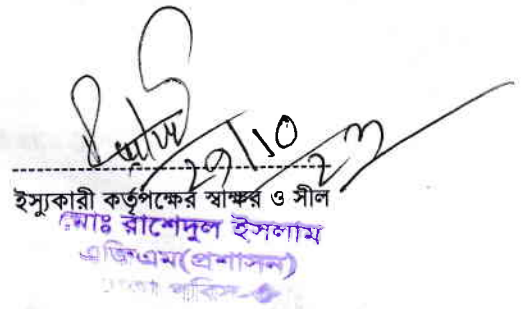 29/10/23
ইস্যুকারী কর্তৃপক্ষের স্বাক্ষর ও সীল
মোঃ রাশেদুল ইসলাম
এজিএম(প্রশাসন)